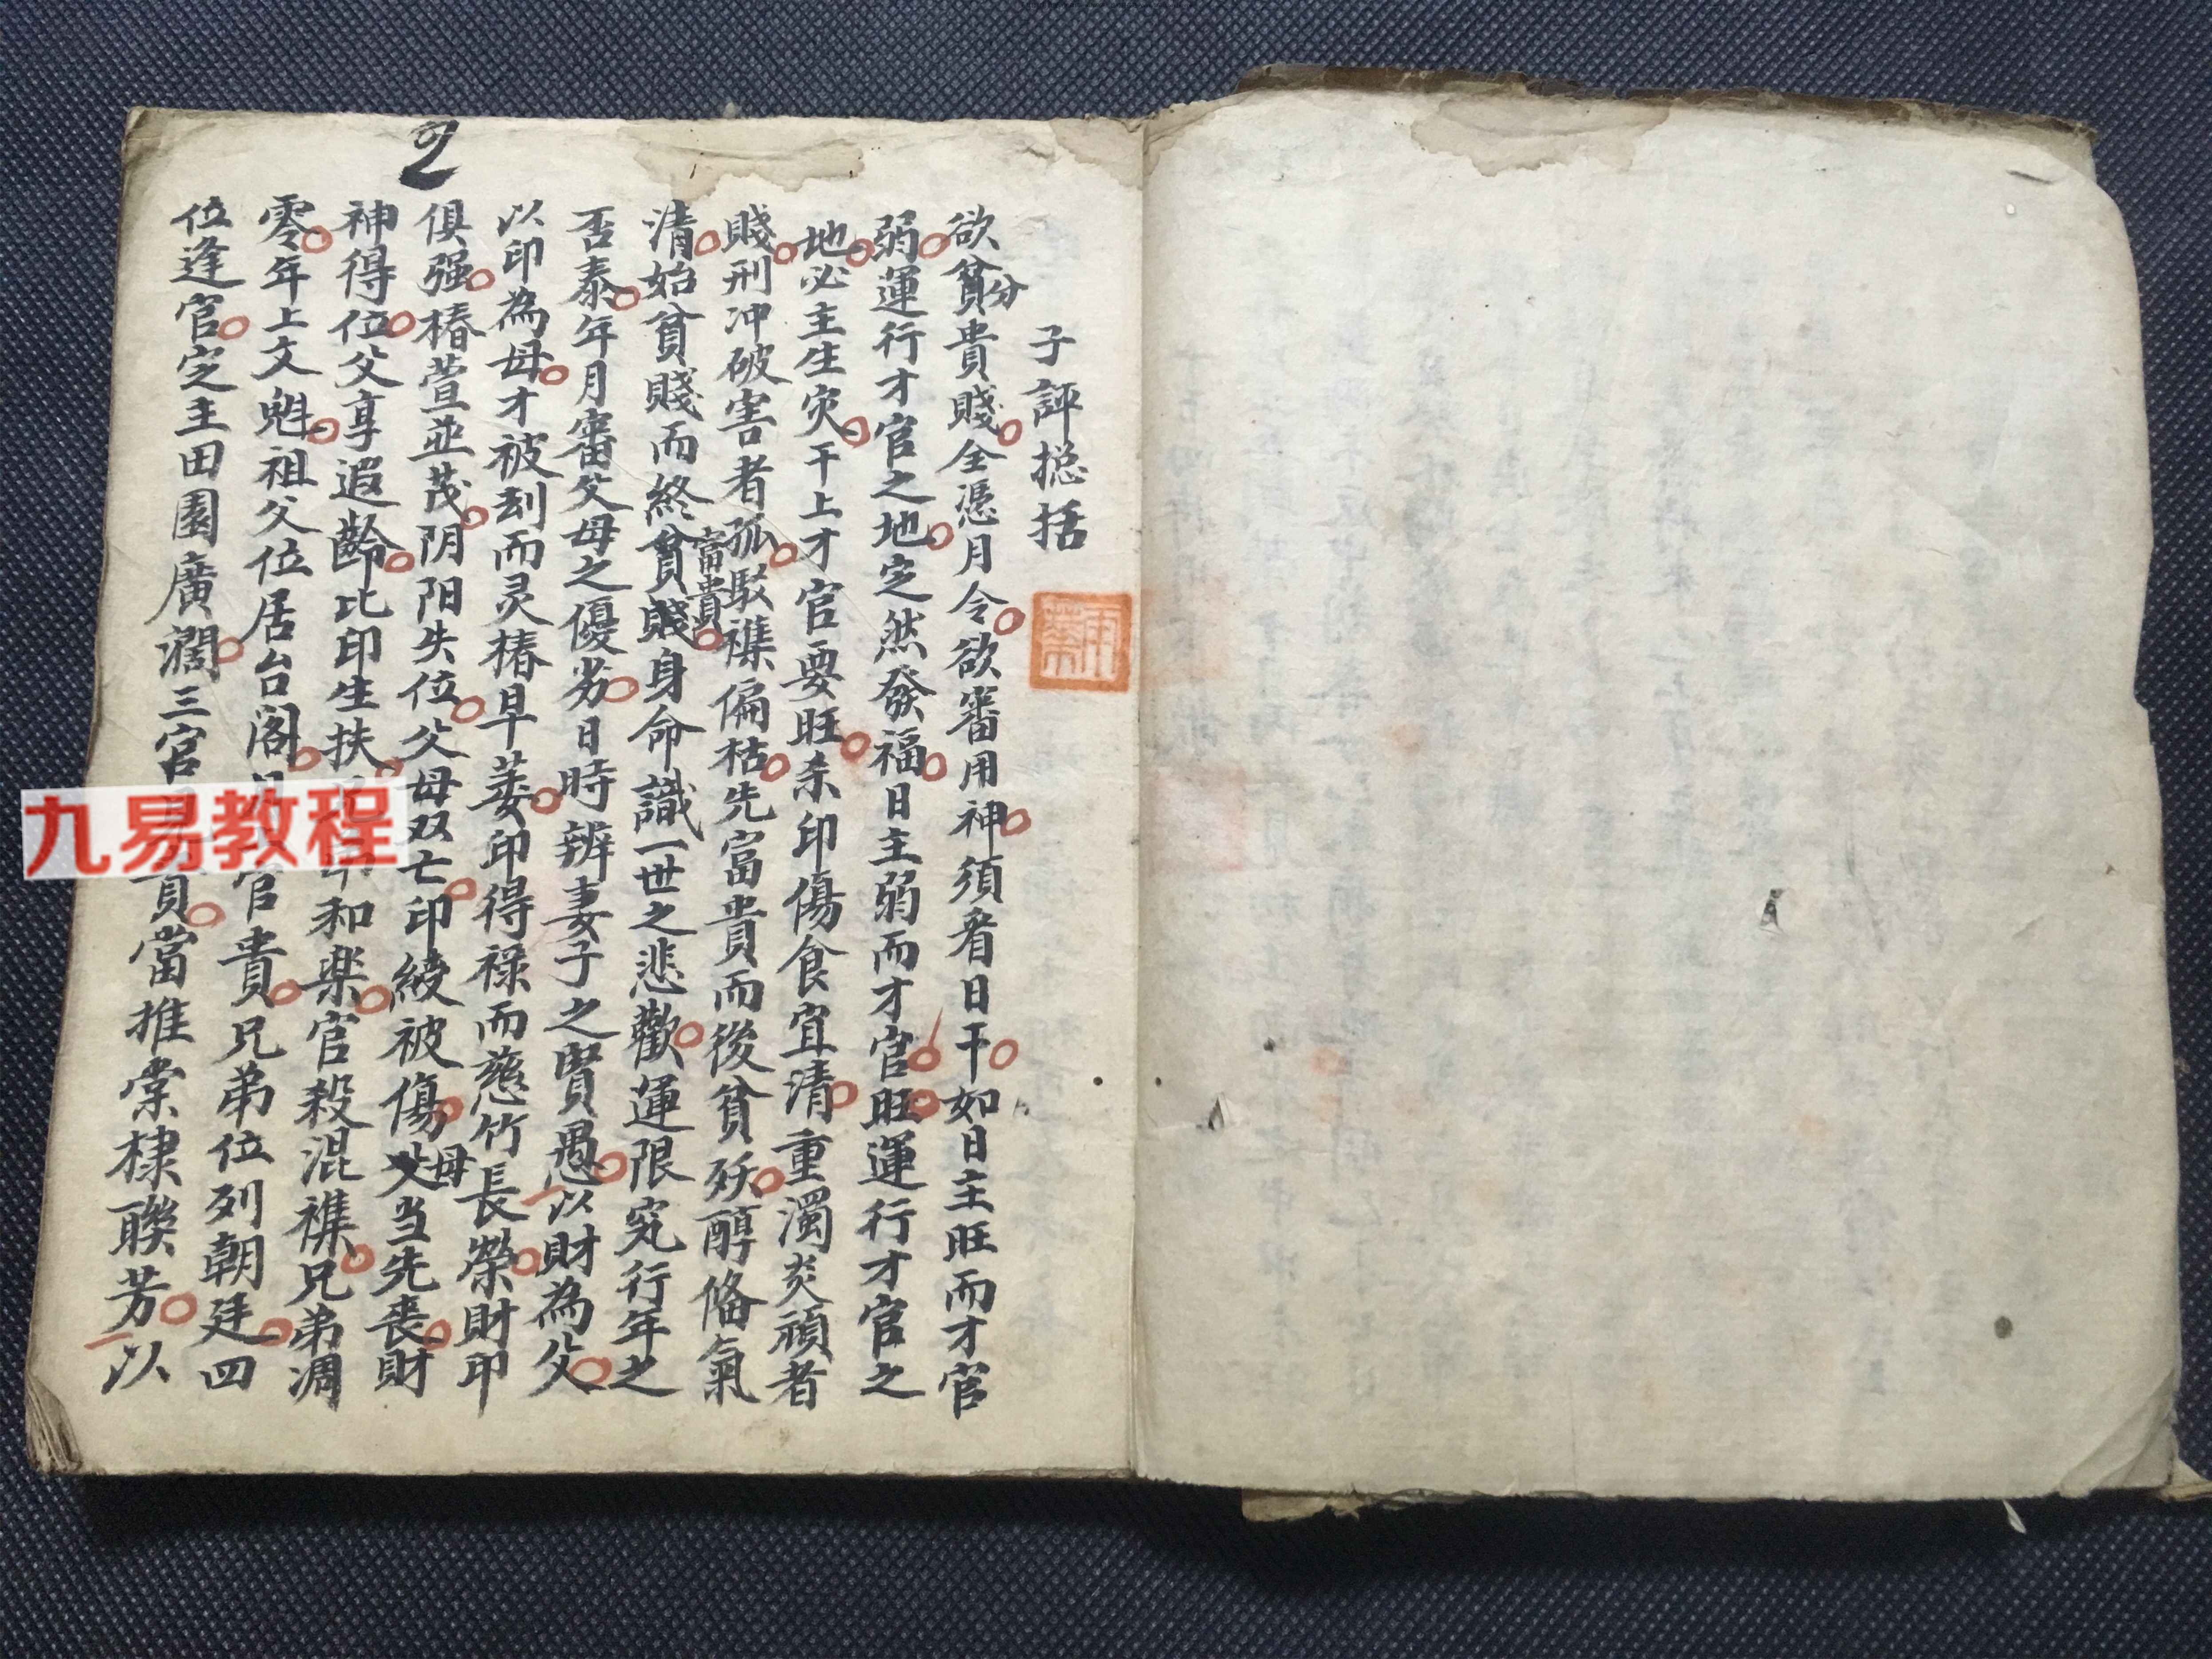 2
子評捴括
欲分貧貴賤全憑月令欲審用神須看日干如日主旺而才官
弱運行才官之地定然發福日主弱而才官旺運行才官之
地必主生灾干上才官要旺杀印傷食宜清重濁炎頑者
賤刑冲破害者孤駁襍偏枯先富貴而後貧殀醇脩氣
清始貧賤而終富貴身命識一世之悲歡運限究行年之
否泰年月審父母之優劣日時辨妻子之賢愚以財為父
以印為母才被刦而灵椿早萎印得禄而慈竹長榮財印
俱强椿萱並茂阴阳失位父母双亡印綬被傷母当先喪財
神得位父享遐齡比印生扶和楽官殺混襍兄弟凋
零年上文魁祖父位居台阁官貴兄弟位列朝廷四
位逢官定主田園廣濶三官當推棠棣聯芳以
九易教程